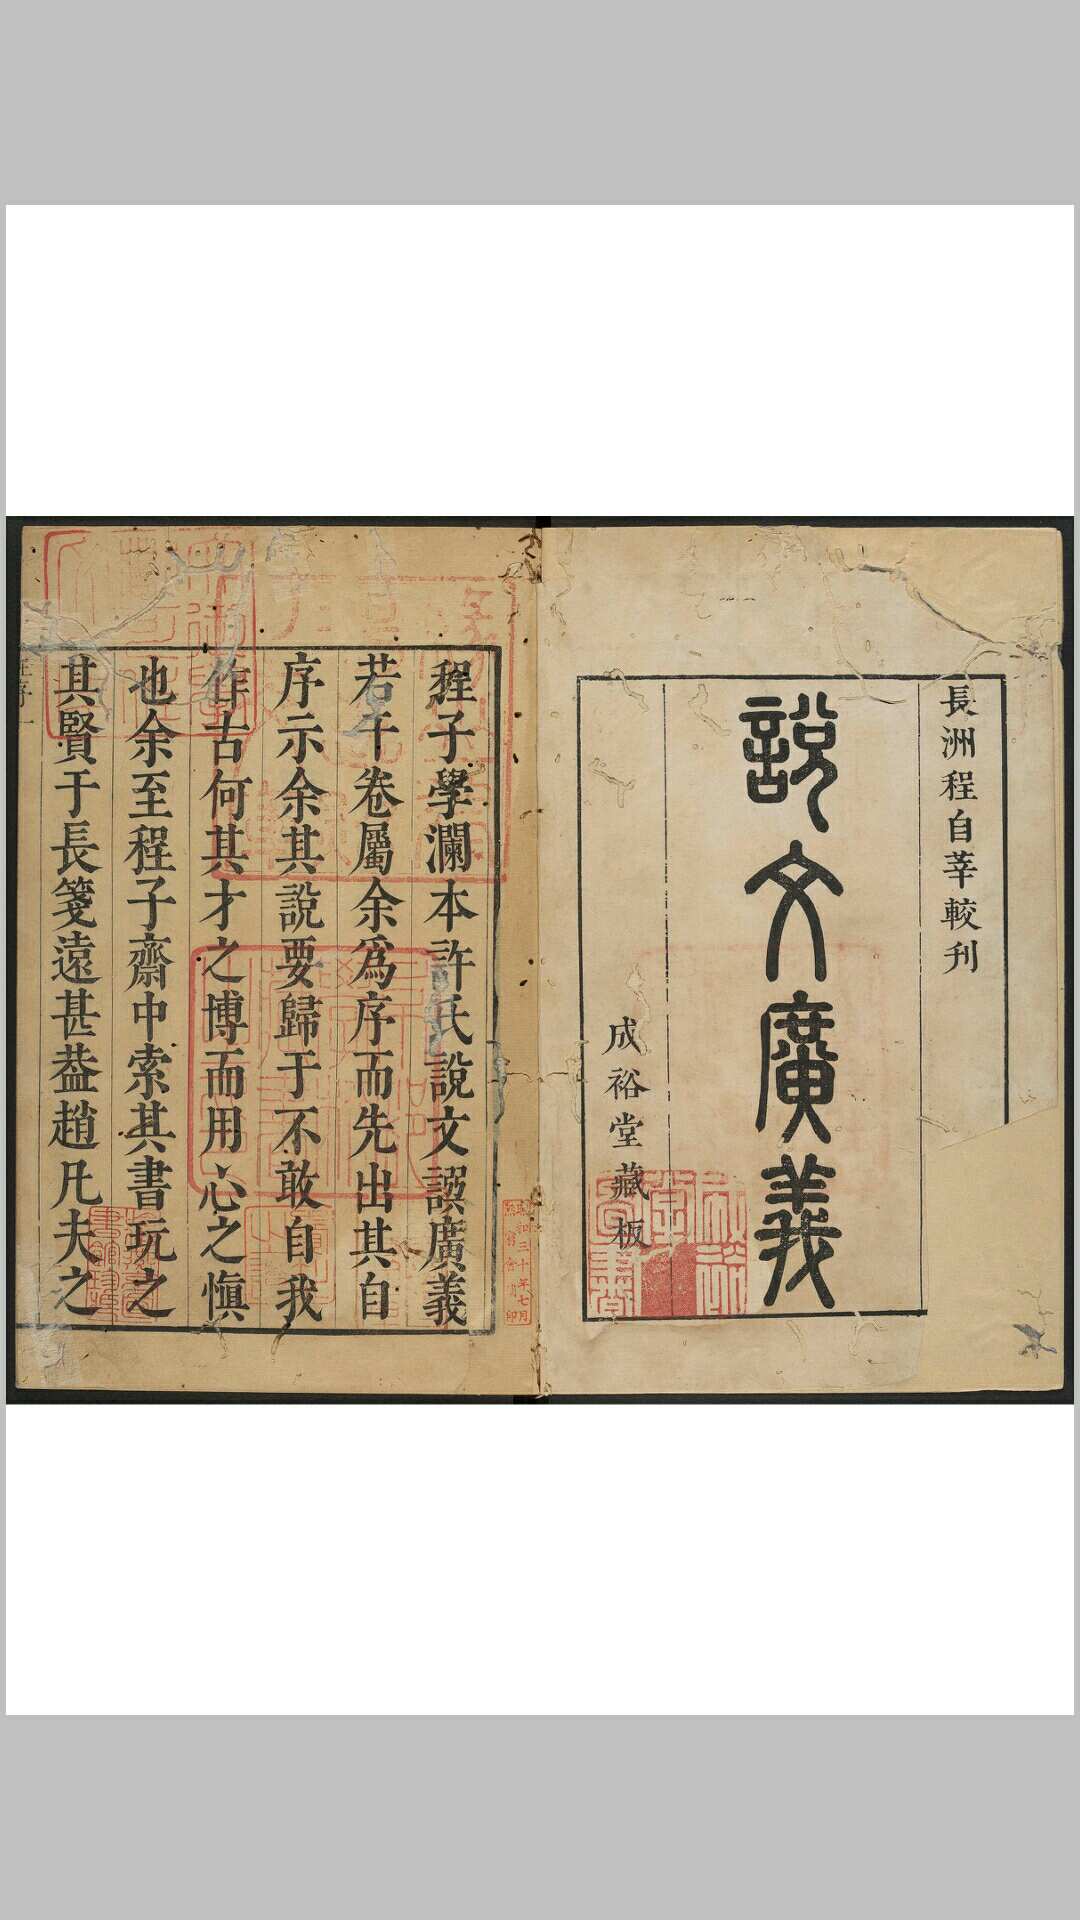 長洲程自莘較刋
說文廣義
成裕堂藏板
程子學瀾本許氏說文譔廣義
若干卷屬余爲序而先出其自
序示余其說要歸于不敢自我
作古何其才之博而用心之愼
也余至程子齋中索其書玩之
其賢于長箋遠甚葢趙凡夫之